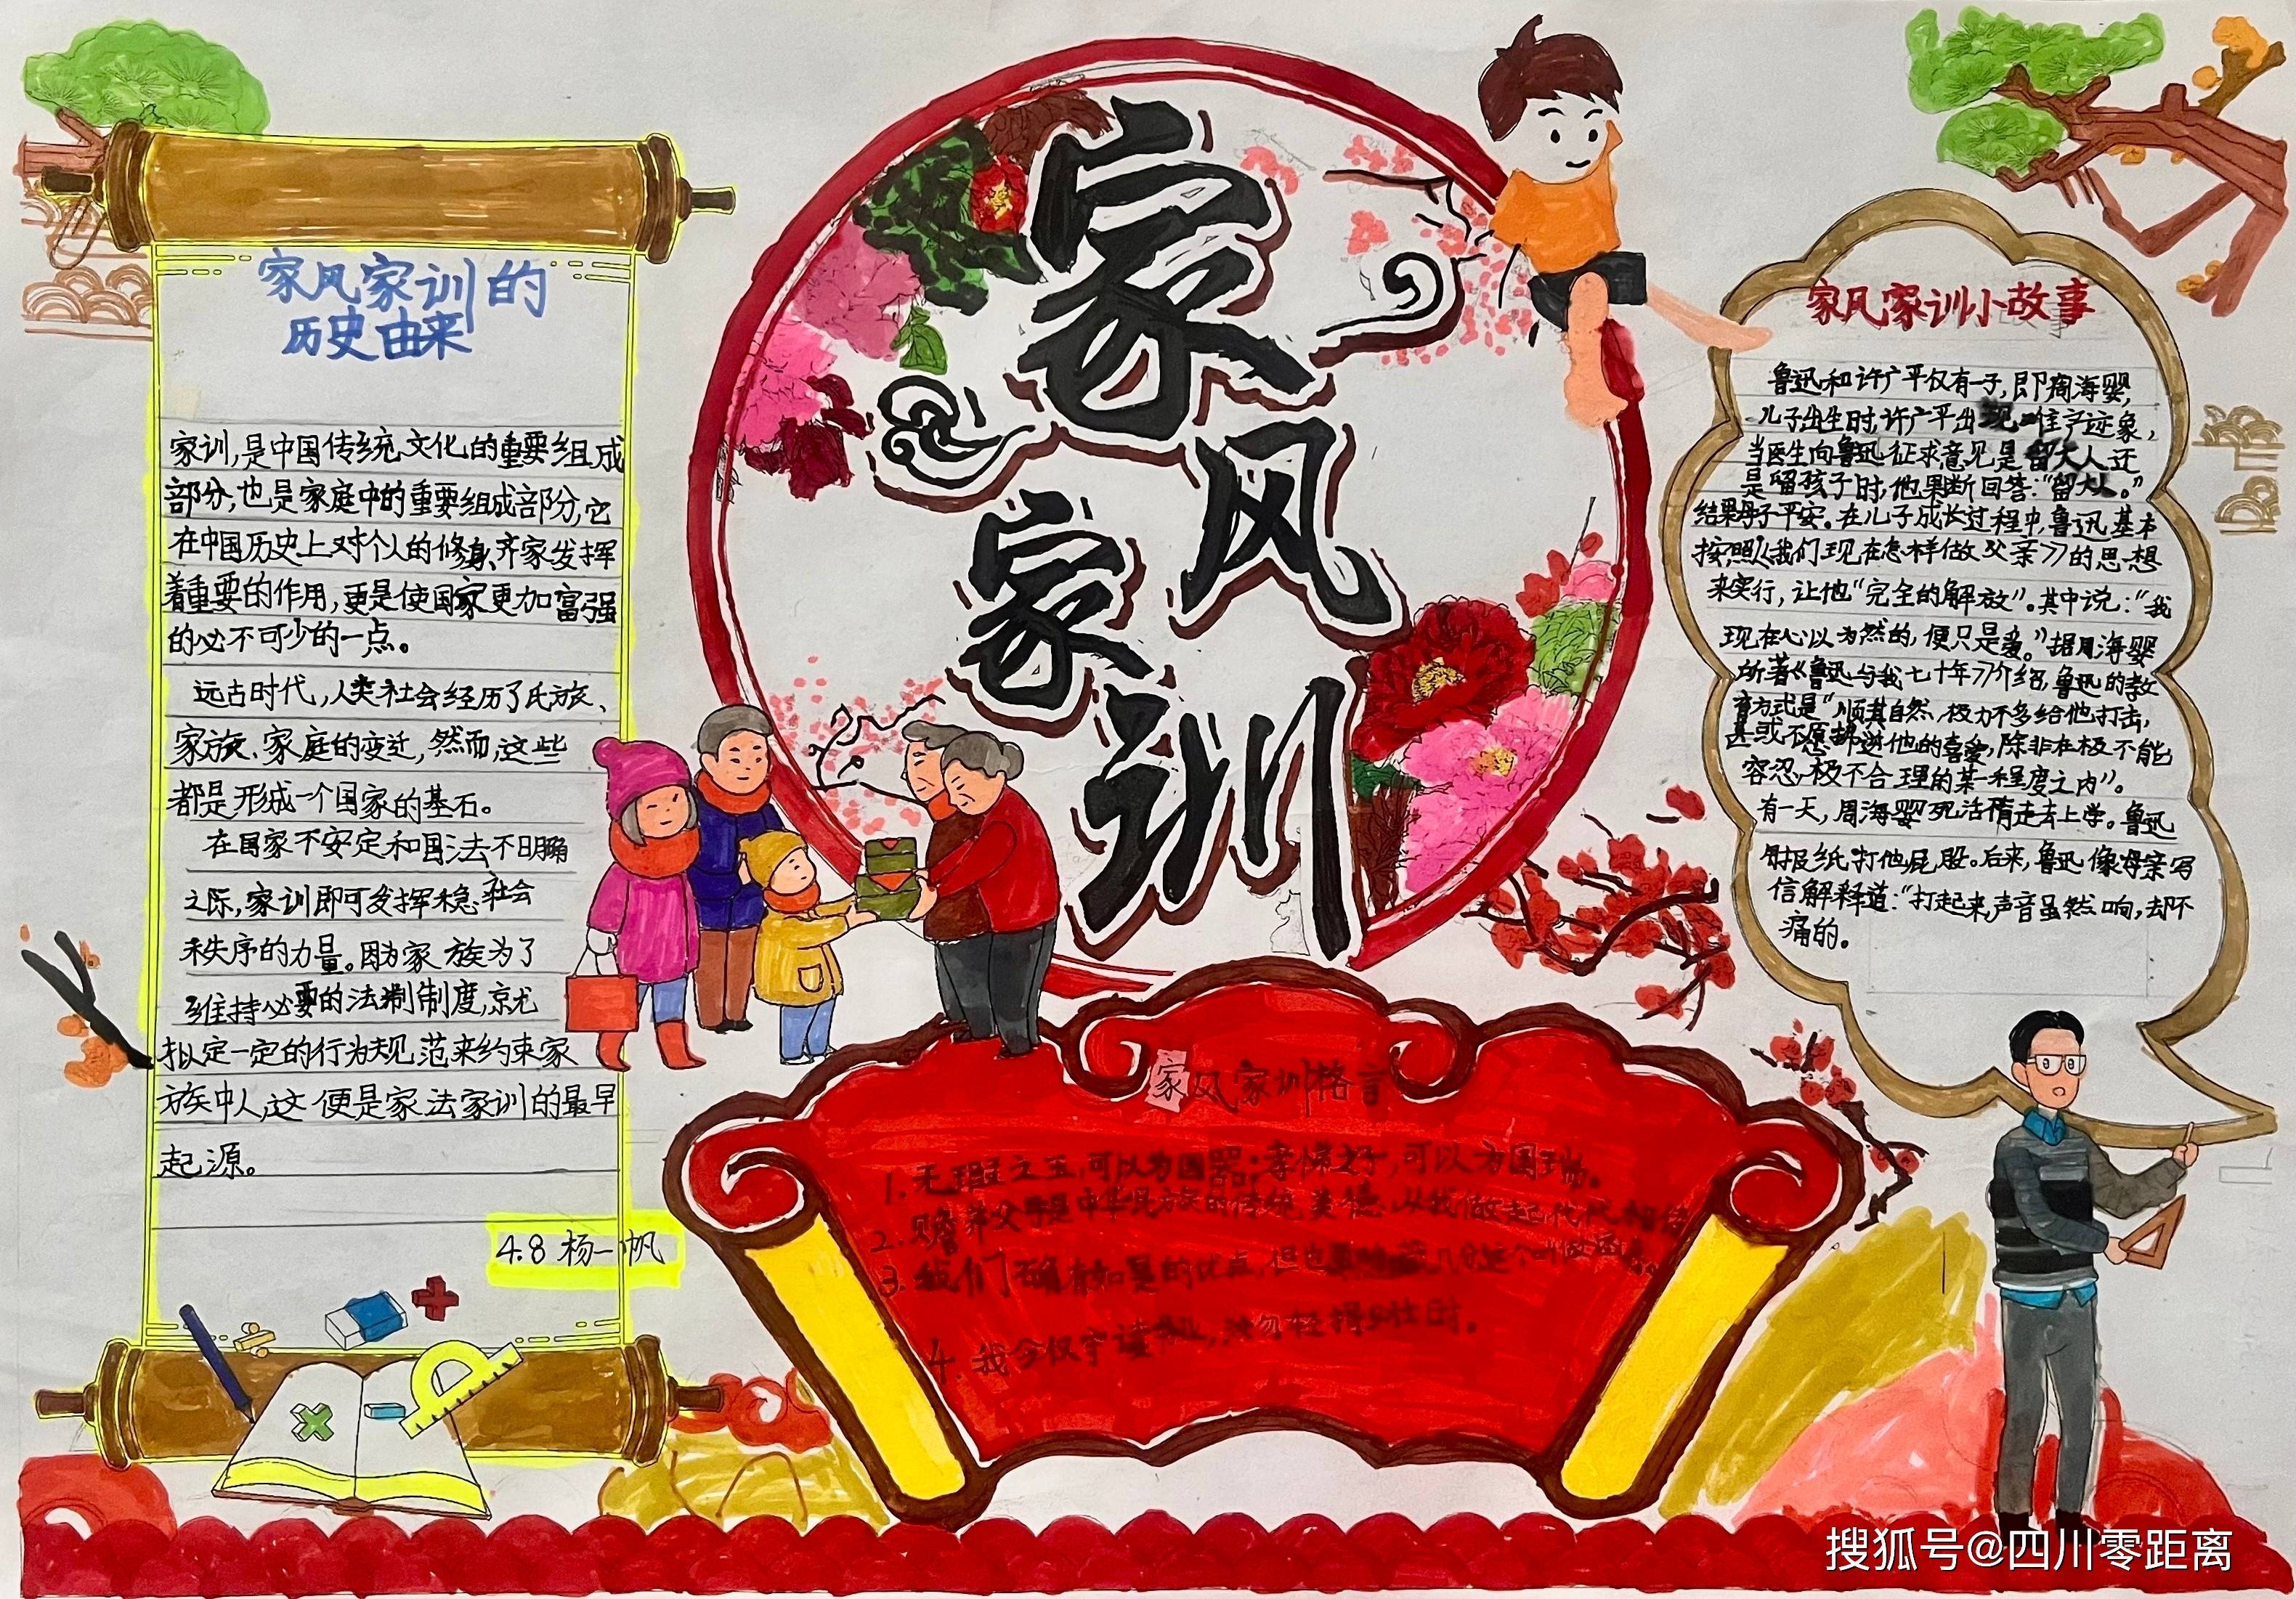 家风家训的
历史由来
家训,是中国传统文化的重要组成
部分,也是家庭中的重要组成部分,它
在中国历史上对个人的修身、齐家发挥
着重要的作用,更是使国家更加富强
的必不可少的一点。
远古时代,人类社会经历了氏族、
家族、家庭的变迁,然而,这些
都是形成一个国家的基石。
在国家不安定和国法不明确
之际,家训即可发挥稳社会
秩序的力量。因为家族为了
维持必要的法制制度,就
拟定一定的行为规范来约束家
族中人,这便是家法家训的最早
起源。
4.8 杨一帆
家
风
家
训
家风家训小故事
鲁迅和许广平仅有一子,即周海婴,
儿子出生时,许广平出现难产迹象,
当医生向鲁迅征求意见是留大人还
是留孩子时,他果断回答:“留大人。”
结果母子平安。在儿子成长过程中,鲁迅基本
按照《我们现在怎样做父亲》的思想
来实行,让他“完全的解放”。其中说:“我
现在心以为然的,便只是爱。”据周海婴
所著《鲁迅与我七十年》介绍,鲁迅的教
育方式是“顺其自然,极力不多给他打击,
甚或不愿拂逆他的喜爱,除非在极不能
容忍,极不合理的某一程度之内”。
有一天,周海婴死活赖走去上学。鲁迅
用报纸打他屁股。后来,鲁迅像母亲写
信解释道:“打起来,声音虽然响,却不
痛的。
家风家训格言
1.无瑕之玉,可以为国器;孝悌之子,可以为国瑞。
2.赡养父母是中华民族的传统美德,从我做起,代代相传
3.我们 有如星的优点,但也
4.我今仅守读书业,汝勿轻捐少壮时。
搜狐号@四川零距离